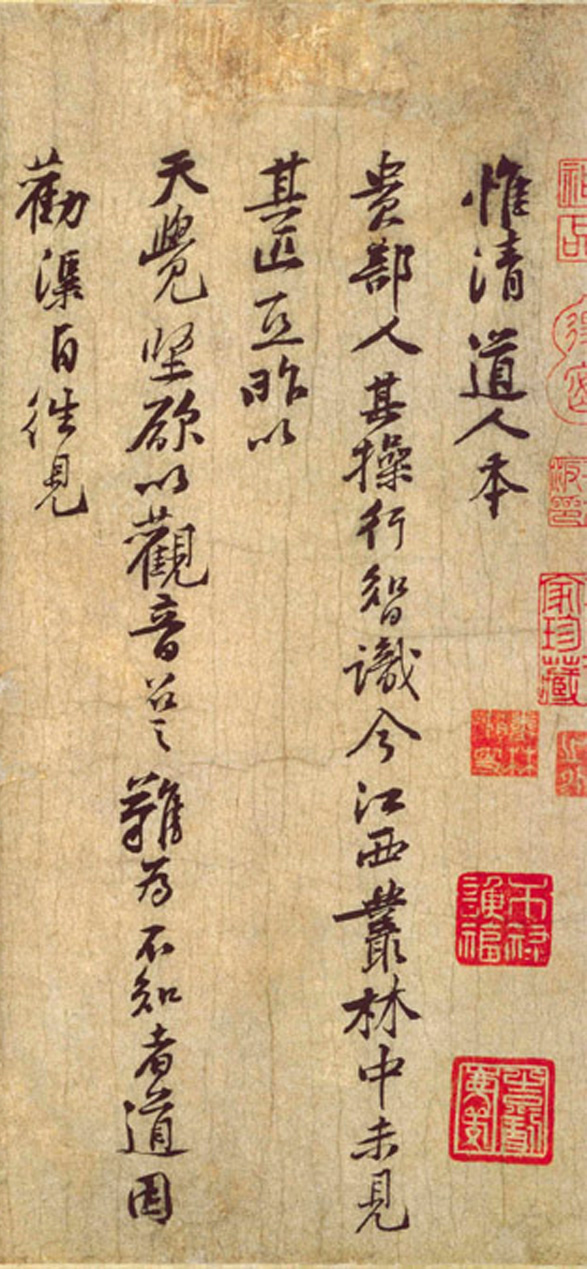 惟清道人本
貴部人其操行智識今江西叢林中未見
其匹亞昨以
天覺堅欲以觀音召之難為不知者道因
勸渠自往見
家珍藏